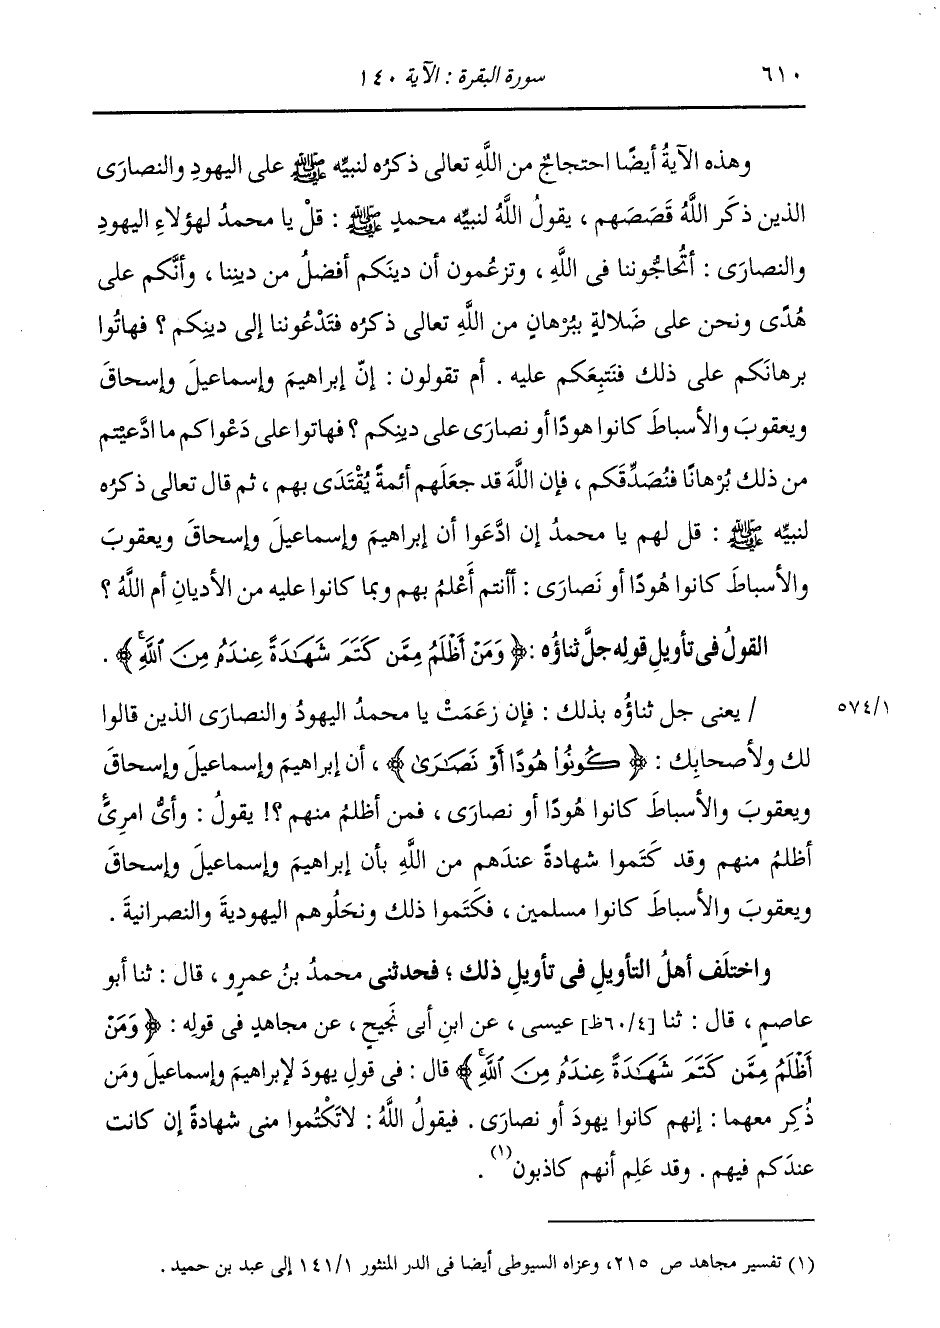 ٦١٠ سورة البقرة : الآية ١٤٠
وهذه الآيةُ أيضًا احتجاجٌ من اللَّهِ تعالى ذكرُه لنبيِّه ﷺ على اليهودِ والنصارَى
الذين ذكَر اللَّهُ قَصَصَهم ، يقولُ اللَّهُ لنبيِّه محمدٍ ﷺ : قلْ يا محمدُ لهؤلاءِ اليهودِ
والنصارَى : أتُحاجُّوننا فى اللَّهِ ، وتزعُمون أن دينَكم أفضلُ من دينِنا ، وأنَّكم على
هُدًى ونحن على ضَلالةٍ ببُرْهانٍ من اللَّهِ تعالى ذكرُه فتَدْعُوننا إلى دينِكم ؟ فهاتُوا
برهانَكم على ذلك فنَتبِعَكم عليه . أم تقولون : إنّ إبراهيمَ وإسماعيلَ وإسحاقَ
ويعقوبَ والأسباطَ كانوا هودًا أو نصارَى على دينِكم ؟ فهاتوا على دَعْواكم ما ادَّعيتم
من ذلك بُرْهانًا فنُصَدِّقَكم ، فإن اللَّهَ قد جعَلَهم أئمةً يُقْتَدَى بهم ، ثم قال تعالى ذكرُه
لنبيِّه ﷺ : قل لهم يا محمدُ إن ادَّعَوا أن إبراهيمَ وإسماعيلَ وإسحاقَ ويعقوبَ
والأسباطَ كانوا هُودًا أو نَصارَى : أأنتم أَعْلمُ بهم وبما كانوا عليه من الأديانِ أم اللَّهُ ؟
القولُ فى تأويلِ قولِه جلَّ ثناؤُه : ﴿ وَمَنْ أَظْلَمُ مِمَّن كَتَمَ شَهَٰدَةً عِندَهُۥ مِنَ ٱللَّهِۚ ﴾ .
/ يعنى جل ثناؤُه بذلك : فإن زعَمَتْ يا محمدُ اليهودُ والنصارَى الذين قالوا ٥٧٤/١
لك ولأصحابِك : ﴿ كُونُوا۟ هُودًا أَوْ نَصَٰرَىٰ ﴾ ، أن إبراهيمَ وإسماعيلَ وإسحاقَ
ويعقوبَ والأسباطَ كانوا هُودًا أو نصارَى ، فمن أظلمُ منهم ؟! يقولُ : وأىُّ امرِئٍ
أظلمُ منهم وقد كَتَموا شهادةً عندَهم من اللَّهِ بأن إبراهيمَ وإسماعيلَ وإسحاقَ
ويعقوبَ والأسباطَ كانوا مسلمين ، فكَتَموا ذلك ونحَلُوهم اليهوديةَ والنصرانيةَ .
واختلَف أهلُ التأويلِ فى تأويلِ ذلك ؛ فحدثنى محمدُ بنُ عمرٍو ، قال : ثنا أبو
عاصمٍ ، قال : ثنا [٦٠/٤ظ] عيسى ، عن ابنِ أبى نَجيحٍ ، عن مجاهدٍ فى قولِه : ﴿ وَمَنْ
أَظْلَمُ مِمَّن كَتَمَ شَهَٰدَةً عِندَهُۥ مِنَ ٱللَّهِۚ ﴾ قال : فى قولِ يهودَ لإبراهيمَ وإسماعيلَ ومَن
ذُكِر معهما : إنهم كانوا يهودَ أو نصارَى . فيقولُ اللَّهُ : لا تَكْتُموا منى شهادةً إن كانت
عندَكم فيهم . وقد عَلِم أنهم كاذبون(١) .
(١) تفسير مجاهد ص ٢١٥، وعزاه السيوطى أيضا فى الدر المنثور ١٤١/١ إلى عبد بن حميد .